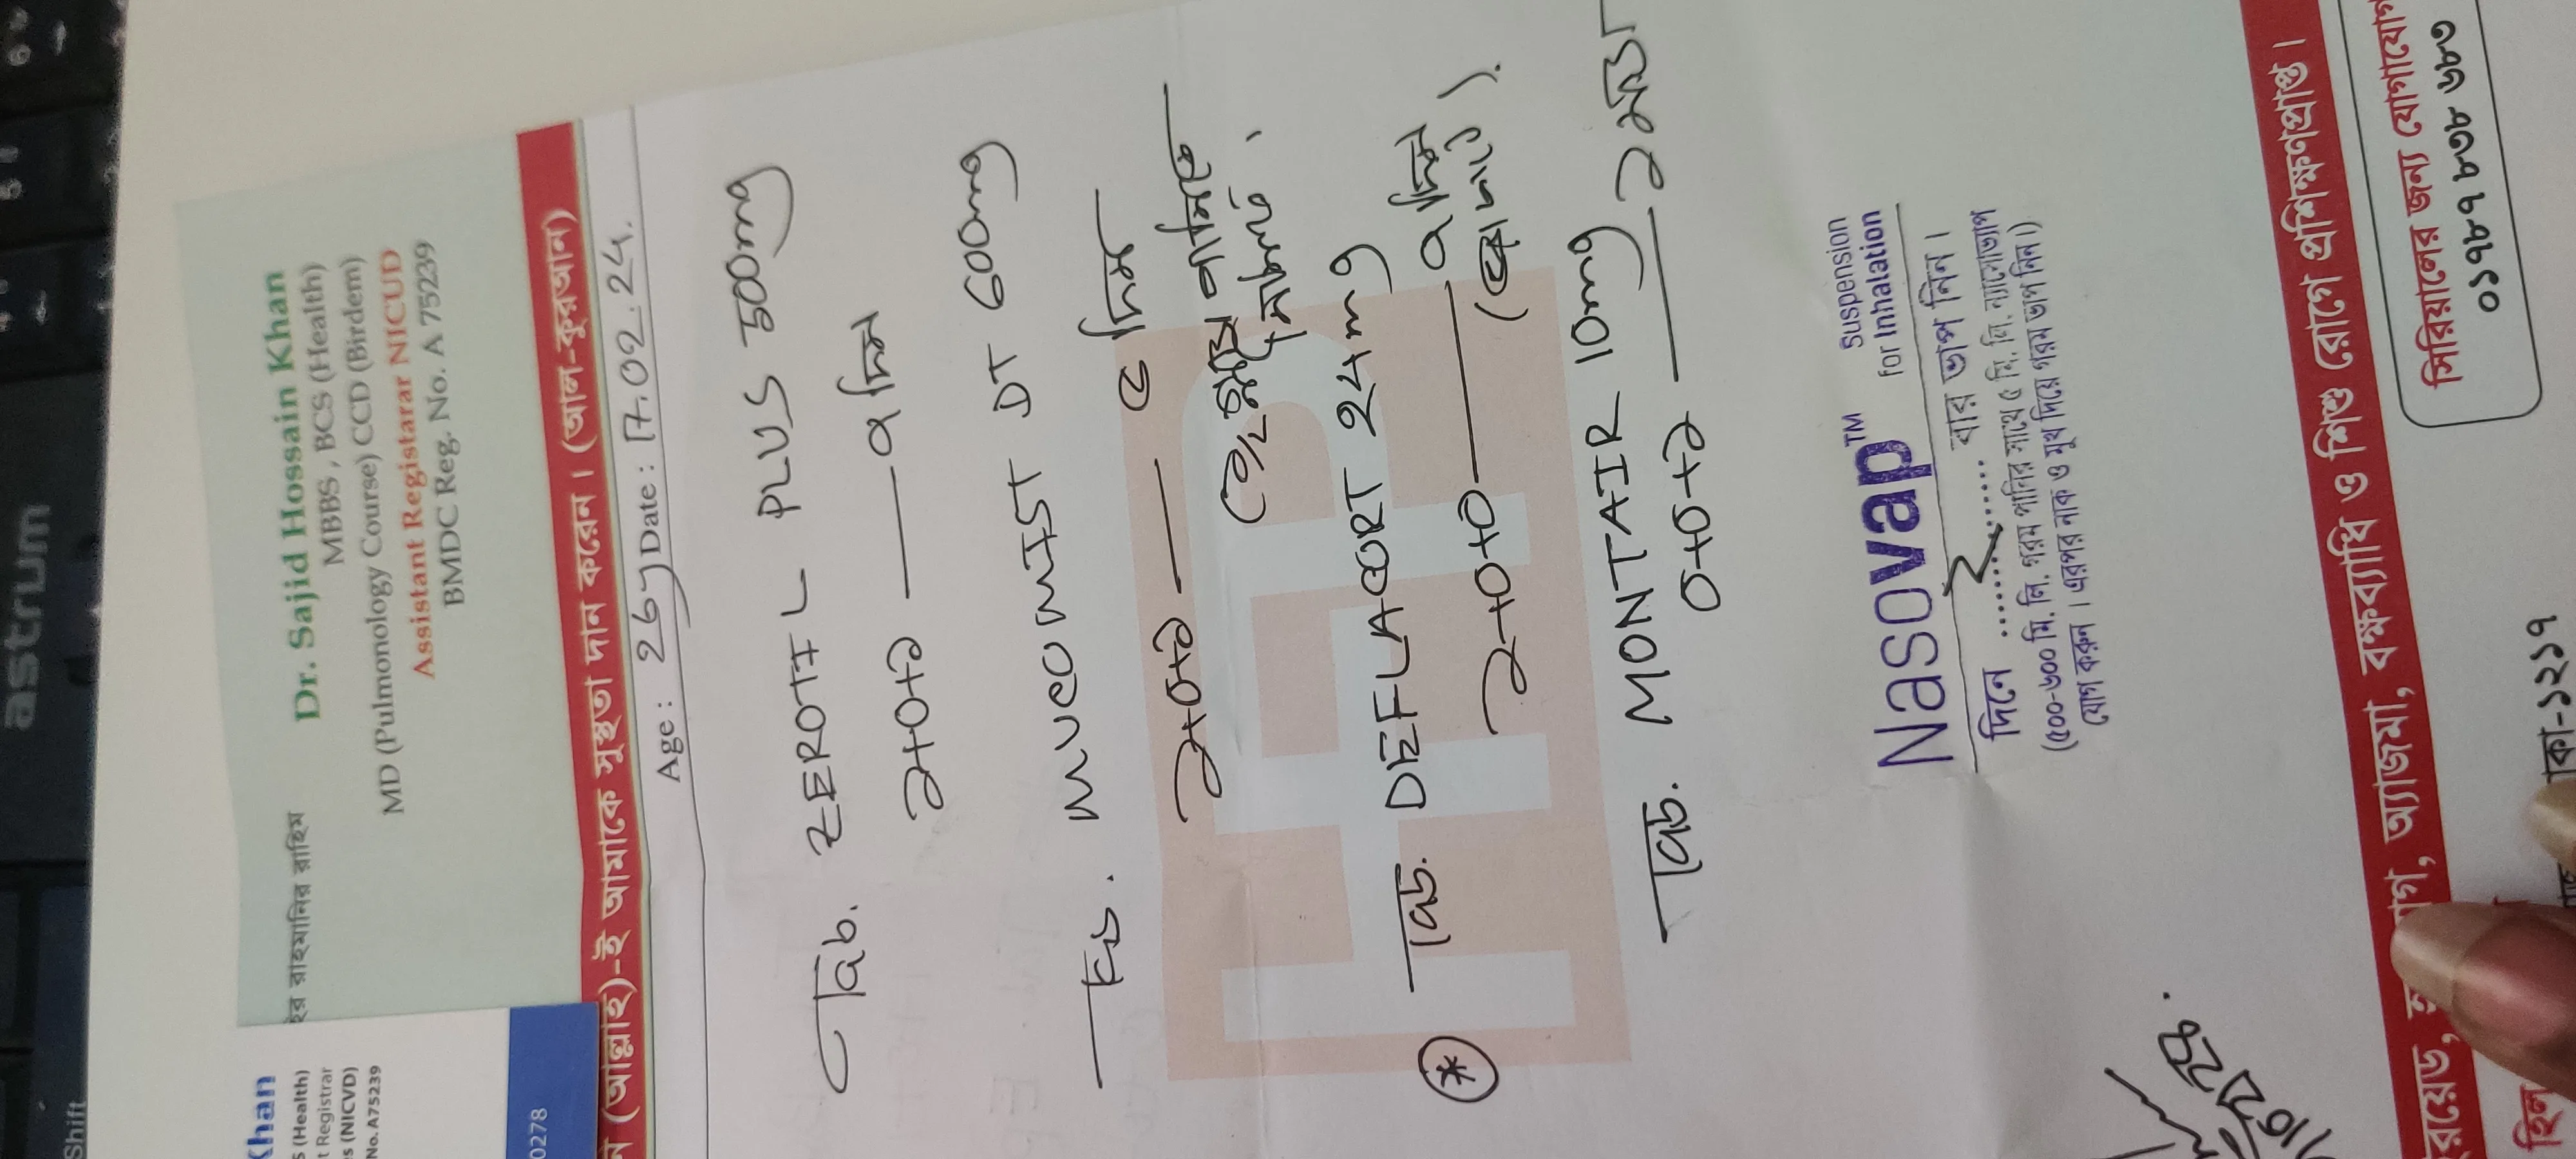 astrum
Shift
Khan
S (Health)
t Registrar
s (NICVD)
No. A75239
0278
ইর রাহমানির রাহিম
Dr. Sajid Hossain Khan
MBBS , BCS (Health)
MD (Pulmonology Course) CCD (Birdem)
Assistant Registarar NICUD
BMDC Reg. No. A 75239
(আল্লাহ)-ই আমাকে সুস্থতা দান করেন। (আল-কুরআন)
Age : 26y Date : 17.02.24.
ট্যাব. ZEROTIL PLUS 500mg
১+০+১ — ৭ দিন
ট্যাব. MUCOMIST DT 600mg
১+০+১ — ৫ দিন
(১/২ গ্লাস পানিতে
গুলিয়ে)
* ট্যাব. DEFLACORT 24mg
১+০+০ — ৭ দিন
(ভরা পেটে)
ট্যাব. MONTAIR 10mg
০+০+১ — ১ মাস
Nasovap™ Suspension
for Inhalation
দিনে ....২.... বার ভাপ নিন।
(৫০০-৬০০ মি. লি. গরম পানির সাথে ৫ মি. লি. ন্যাসোভ্যাপ
যোগ করুন। এরপর নাক ও মুখ দিয়ে গরম ভাপ নিন।)
অ্যাজমা, বক্ষব্যাধি ও শিশু রোগে প্রশিক্ষণপ্রাপ্ত।
সিরিয়ালের জন্য যোগাযোগ
০১৭৮৭ ৮৩৮ ৬৮৩
কা-১২১৭